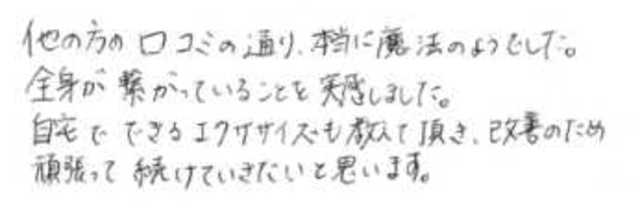 他の方の口コミの通り、本当に魔法のようでした。
全身が繋がっていることを実感しました。
自宅でできるエクササイズも教えて頂き、改善のため
頑張って続けていきたいと思います。